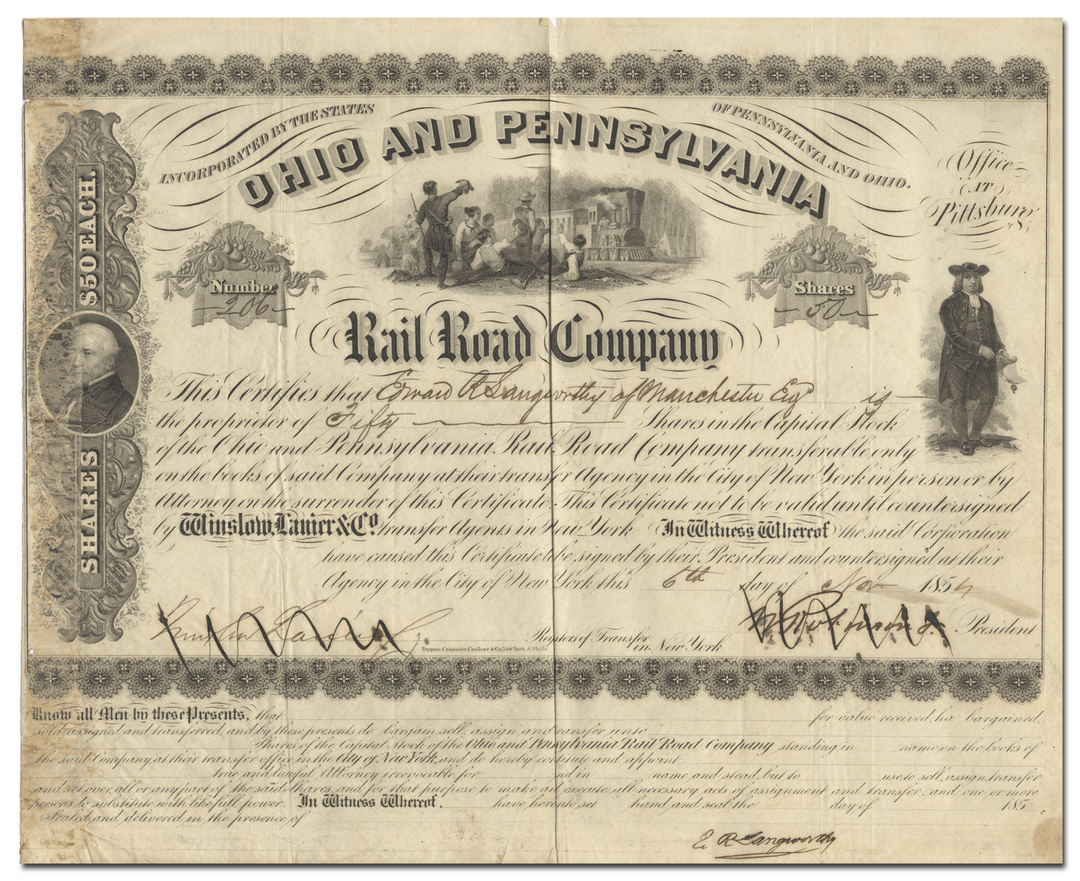 INCORPORATED BY THE STATES OF PENNSYLVANIA AND OHIO.
OHIO AND PENNSYLVANIA
Office
AT
Pittsburg
$50 EACH.
SHARES
Number
206
Shares
50
Rail Road Company
This Certifies that Edward R Langworthy of Manchester Esq is
the proprietor of Fifty Shares in the Capital Stock
of the Ohio and Pennsylvania Rail Road Company transferable only
on the books of said Company at their transfer Agency in the City of New York in person or by
Attorney on the surrender of this Certificate. This Certificate not to be valid until countersigned
by Winslow, Lanier & Co. Transfer Agents in New York In Witness Whereof the said Corporation
have caused this Certificate to be signed by their President and countersigned at their
Agency in the City of New York this 6th day of Nov 1854
Winslow Lanier & Co. Registers of Transfer in New York President
Toppan, Carpenter, Casilear & Co. New York & Phila.
Know all Men by these Presents, that for value received, ha bargained,
sold, assigned and transferred, and by these presents do bargain, sell, assign and transfer unto
Shares of the Capital Stock of the Ohio and Pennsylvania Rail Road Company standing in name on the books of
the said Company, at their transfer office in the City of New York, and do hereby constitute and appoint
true and lawful Attorney irrevocable for and in name and stead, but to use to sell, assign, transfer
and set over, all or any part of the said shares, and for that purpose to make and execute all necessary acts of assignment and transfer, and one or more
persons to substitute with like full power. In Witness Whereof, have hereunto set hand and seal the day of 185
Sealed and delivered in the presence of
E R Langworthy